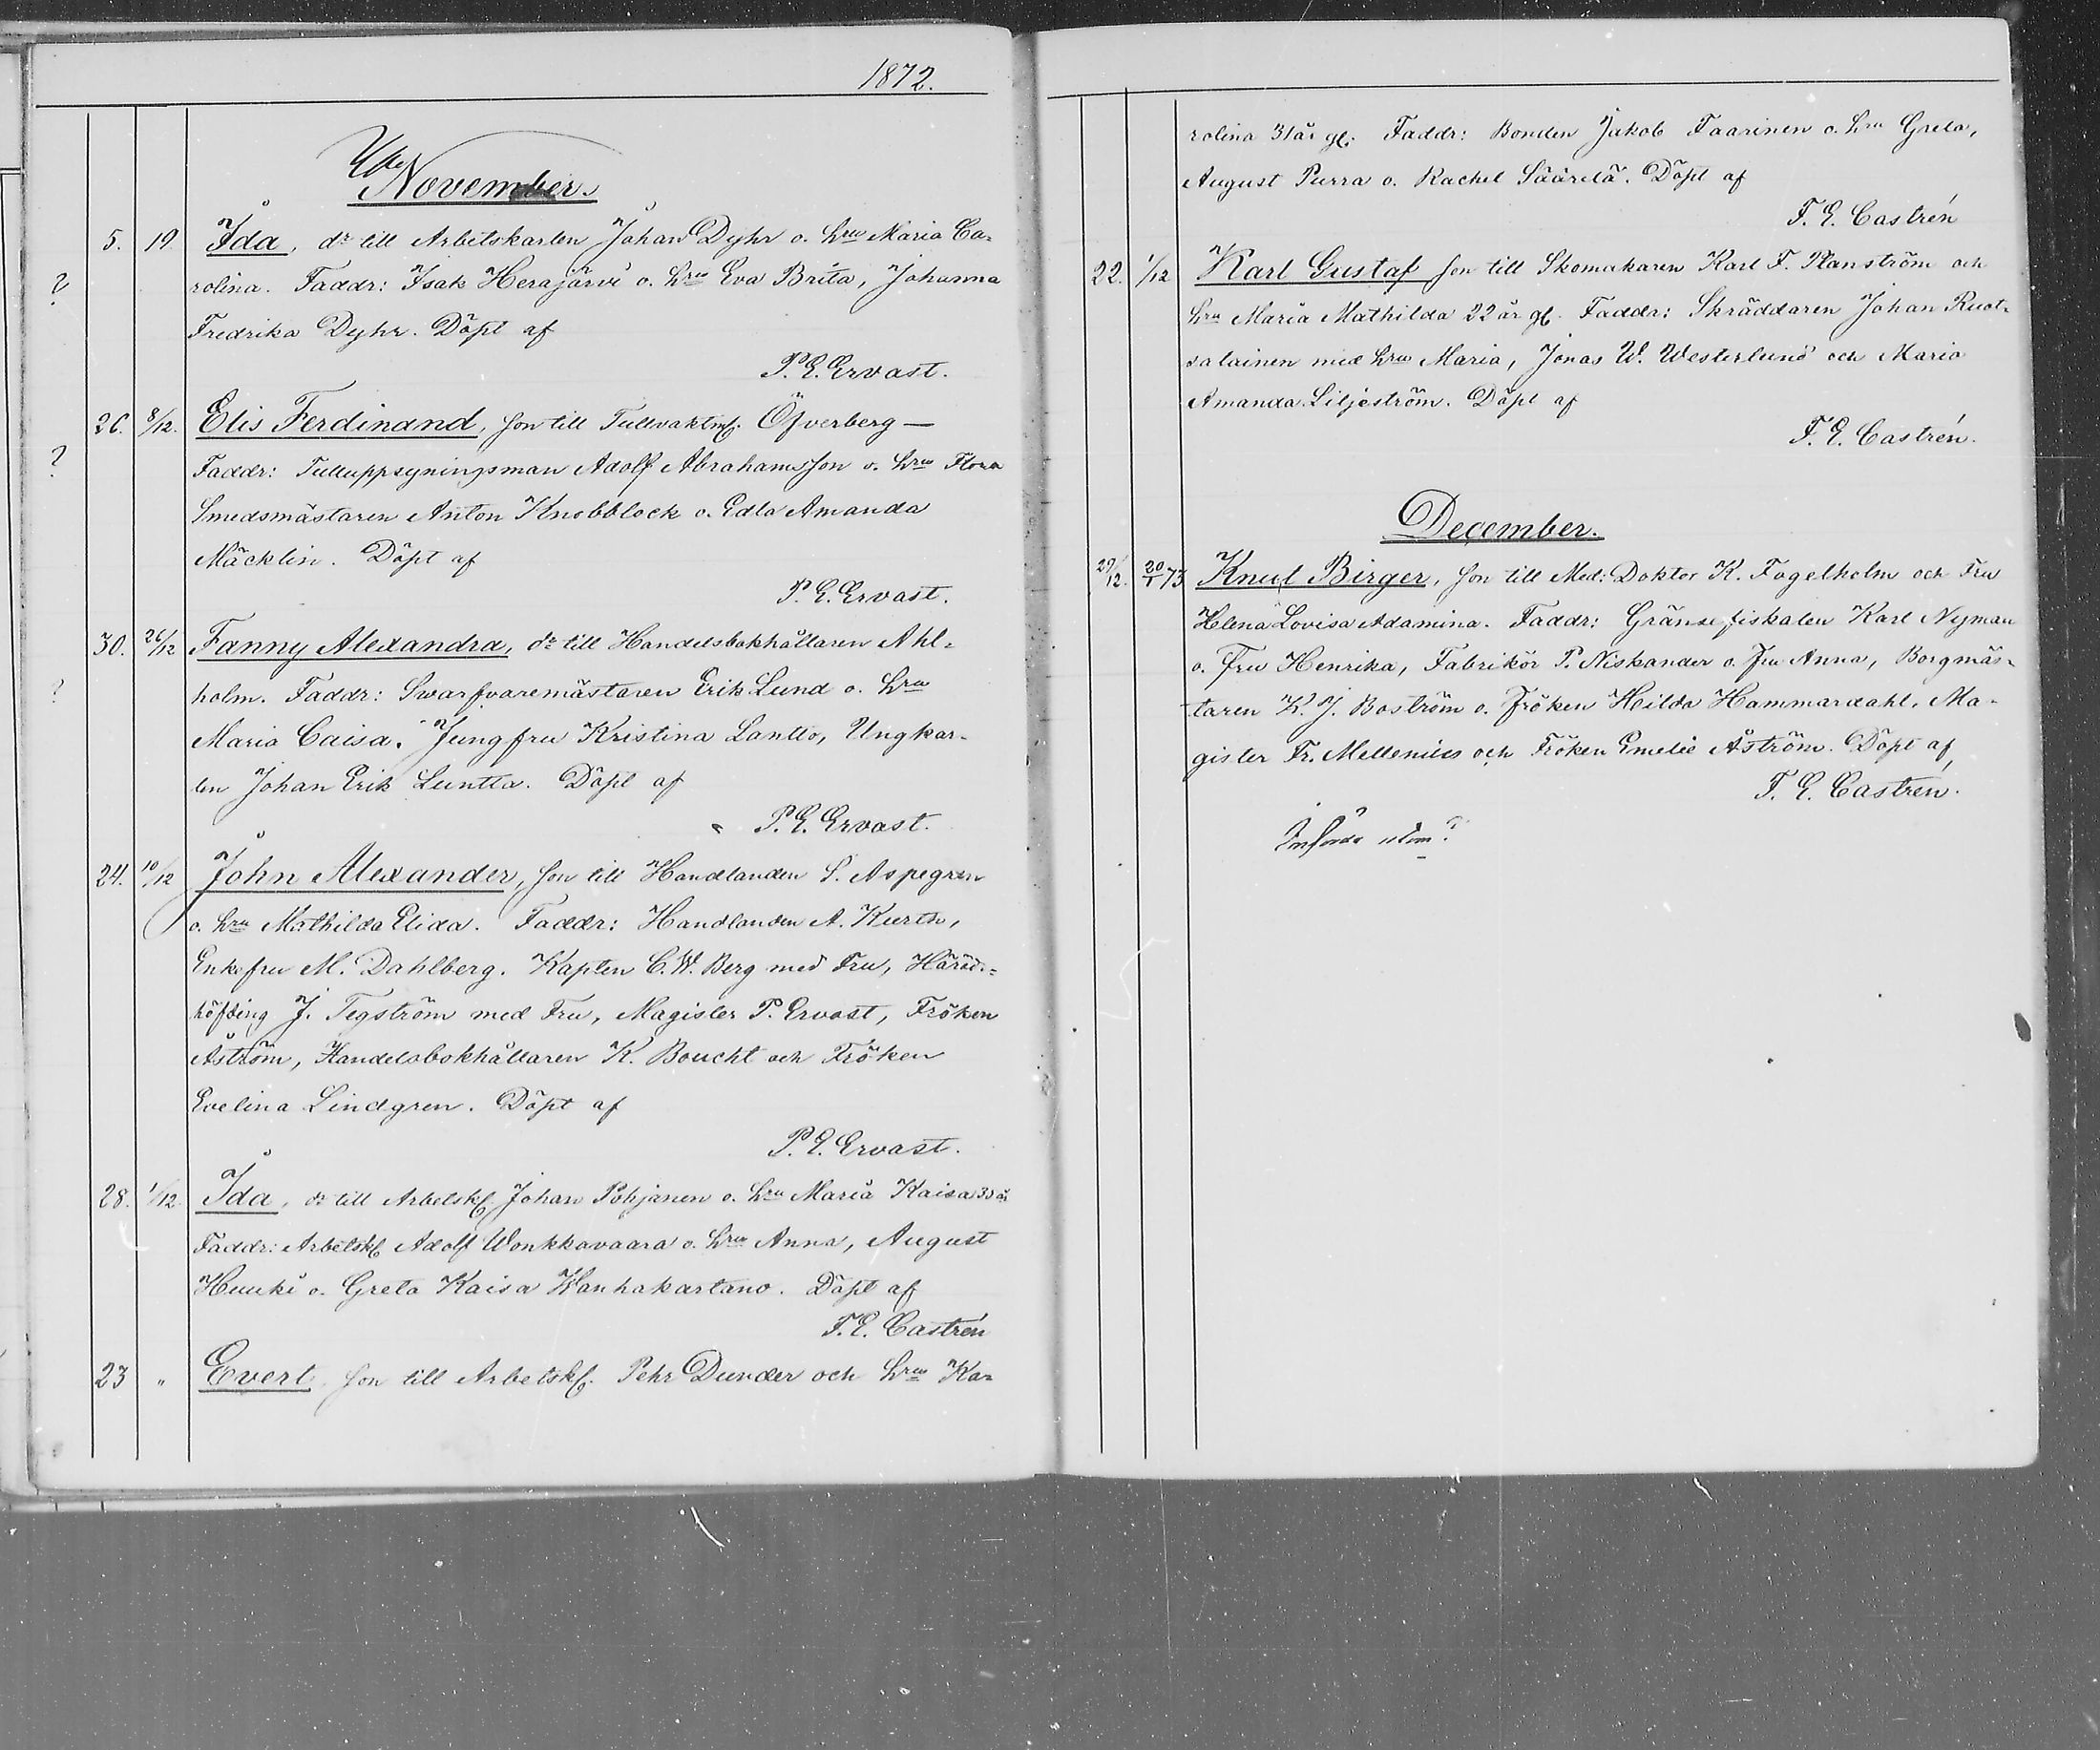 1872.
November.
5. 19 Ida, dr till Arbetskarlen Johan Dyhr o. hru Maria Ca-
? rolina. Faddr: Isak Herajärvi o. hru Eva Brita, Johanna
Fredrika Dyhr. Döpt af
P. E. Ervast.
26. 8/12. Elis Ferdinand, son till Tullvaktm. Öfverberg —
? Faddr: Tulluppsyningsman Adolf Abrahamsson o. hru Flora
Smedsmästaren Anton Knobblock o. Edla Amanda
Mäcklin. Döpt af
P. E. Ervast.
30. 26/12 Fanny Alexandra, dr till Handelsbokhållaren Ahl-
? holm. Faddr: Swarfvaremästaren Erik Lund o. hru
Maria Caisa. Jungfru Kristina Lantto, Ungkar-
len Johan Erik Luntta. Döpt af
P. E. Ervast.
24. 10/12 John Alexander, son till Handlanden S. Aspegren
o. hru Mathilda Elida. Faddr: Handlanden A. Kurth,
Enkefru M. Dahlberg. Kapten C. W. Berg med Fru, Härads-
höfding J. Tegström med Fru, Magister P. Ervast, Fröken
Åström, Handelsbokhållaren K. Boucht och Fröken
Evelina Lindgren. Döpt af
P. E. Ervast.
28. 1/12 Ida, dr till Arbetsk. Johan Pohjanen o. hru Maria Kaisa 30 år
Faddr: Arbetsk. Adolf Wonkkavaara o. hru Anna, August
Huuki o. Greta Kaisa Wanhakartano. Döpt af
F. E. Castrén
23 " Evert son till Arbetsk. Pehr Dunder och hru Ka-
rolina 31 år gl. Faddr: Bonden Jakob Taarinen o. hru Greta,
August Purra o. Rachel Säärelä. Döpt af
F. E. Castrén
22. 1/12 Karl Gustaf son till Skomakaren Karl F. Planström och
hru Maria Mathilda 22 år gl. Faddr: Skräddaren Johan Ruot-
salainen med hru Maria, Jonas W. Westerlund och Maria
Amanda Liljeström. Döpt af
F. E. Castrén.
December.
29/12. 20/1 73 Knut Birger, son till Med: Doktor K. Fagelholm och Fru
Helena Lovisa Adamina. Faddr: Gränsefiskalen Karl Nyman
o. Fru Henrika, Fabrikör P. Niskander o. fru Anna, Borgmäs-
taren K. J. Boström o. Fröken Hilda Hammardahl, Ma-
gister Fr. Mellenius och Fröken Emelie Åström. Döpt af
F. E. Castrén.